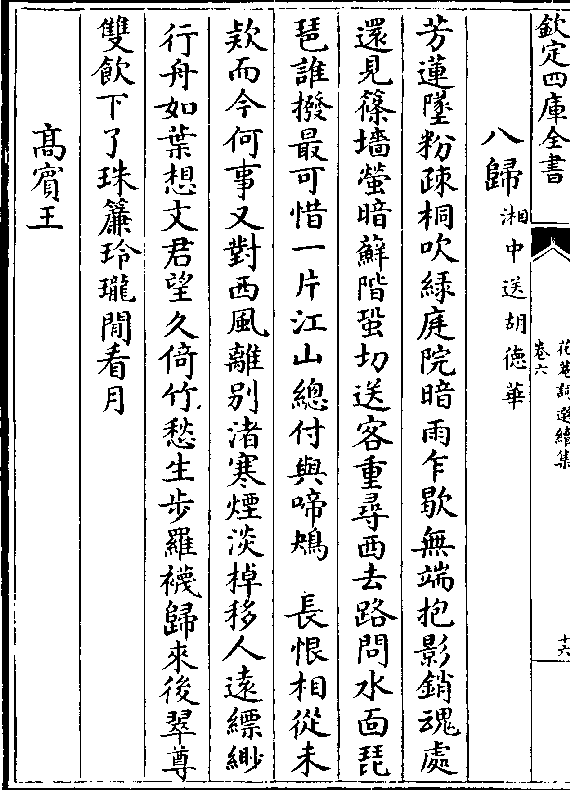 欽定四庫全書
花菴詞選續集
卷六
十六
八歸 湘中送胡德華
芳蓮墜粉疎桐吹緑庭院暗雨乍歇無端抱影銷魂處
還見篠墻螢暗蘚階蛩切送客重尋西去路問水面琵
琶誰撥最可惜一片江山總付與啼鴂 長恨相從未
欵而今何事又對西風離别渚寒煙淡棹移人遠縹緲
行舟如葉想文君望久倚竹愁生步羅襪歸來後翠尊
雙飲下了珠簾玲瓏閒看月
髙賔王